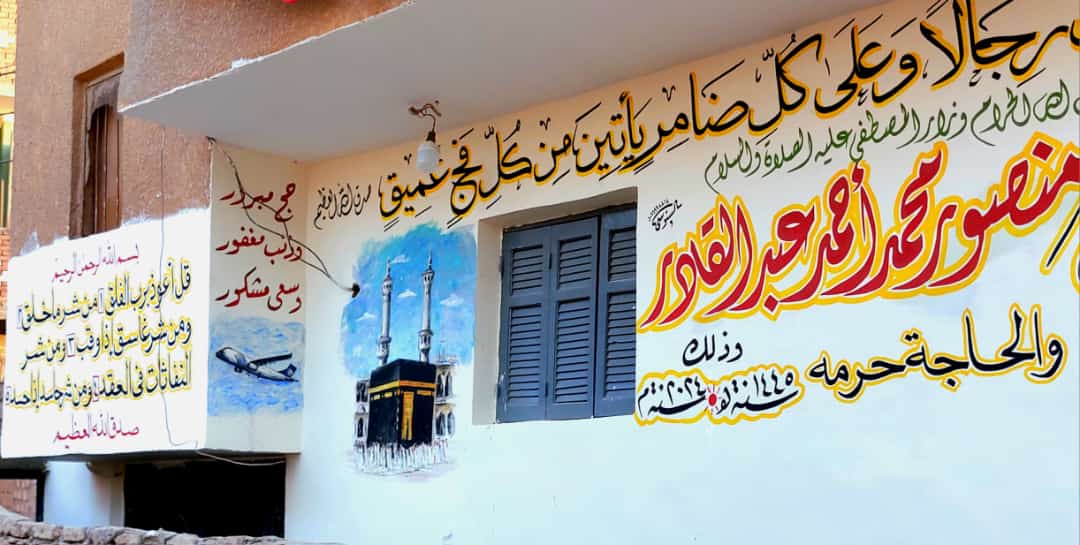 رجالا وَعَلَى كُلِّ ضَامِرٍ يَأتين مِن كُلِّ فَجٍّ عَمِيقٍ
صدق الله العظيم
الحرام وزار المصطفى عليه الصلاة والسلام
منصور محمد أحمد عبد القادر
والحاجة حرمه
وذلك
سنة ١٤٤٥ هـ سنة ٢٠٢٤ م
حج مبرور
وذنب مغفور
وسعى مشكور
بسم الله الرحمن الرحيم
قل أعوذ برب الفلق ١ من شر ما خلق ٢
ومن شر غاسق إذا وقب ٣ ومن شر
النفاثات فى العقد ٤ ومن شر حاسد إذا حسد ٥
صدق الله العظيم